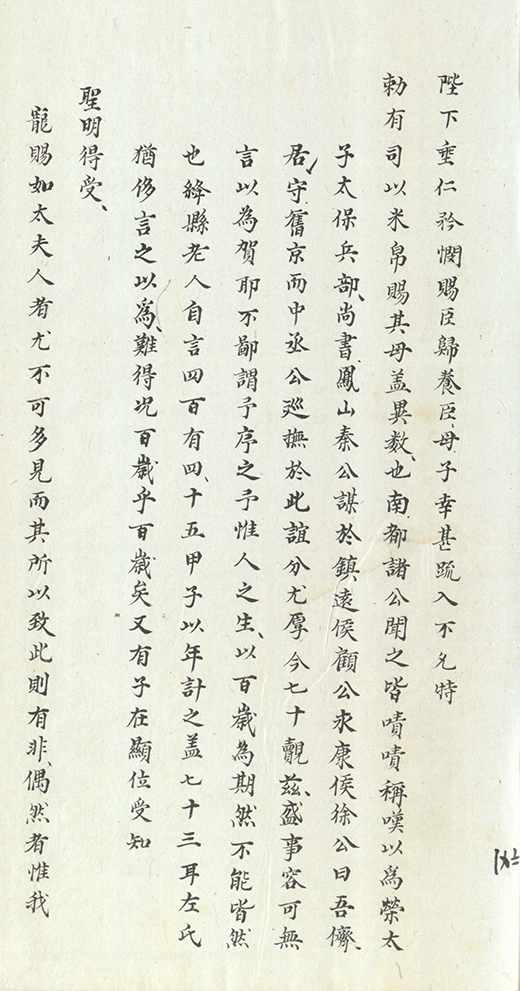 陛下垂仁矜憫賜臣歸養臣母子幸甚䟽入不允特
勅有司以米帛賜其母盖異数也南都諸公聞之皆嘖嘖稱嘆以為榮太
子太保兵部尚書鳳山秦公謀於鎮遠侯顧公永康侯徐公曰吾儕
居守舊京而中丞公巡撫於此誼分尤厚今七十覩兹盛事容可無
言以為賀耶不鄙謂予序之予惟人之生以百歲為期然不能皆然
也絳縣老人自言四百有四十五甲子以年計之盖七十三耳左氏
猶侈言之以爲難得况百歲乎百歲矣又有子在顯位受知
聖明得受
寵賜如太夫人者尤不可多見而其所以致此則有非偶然者惟我